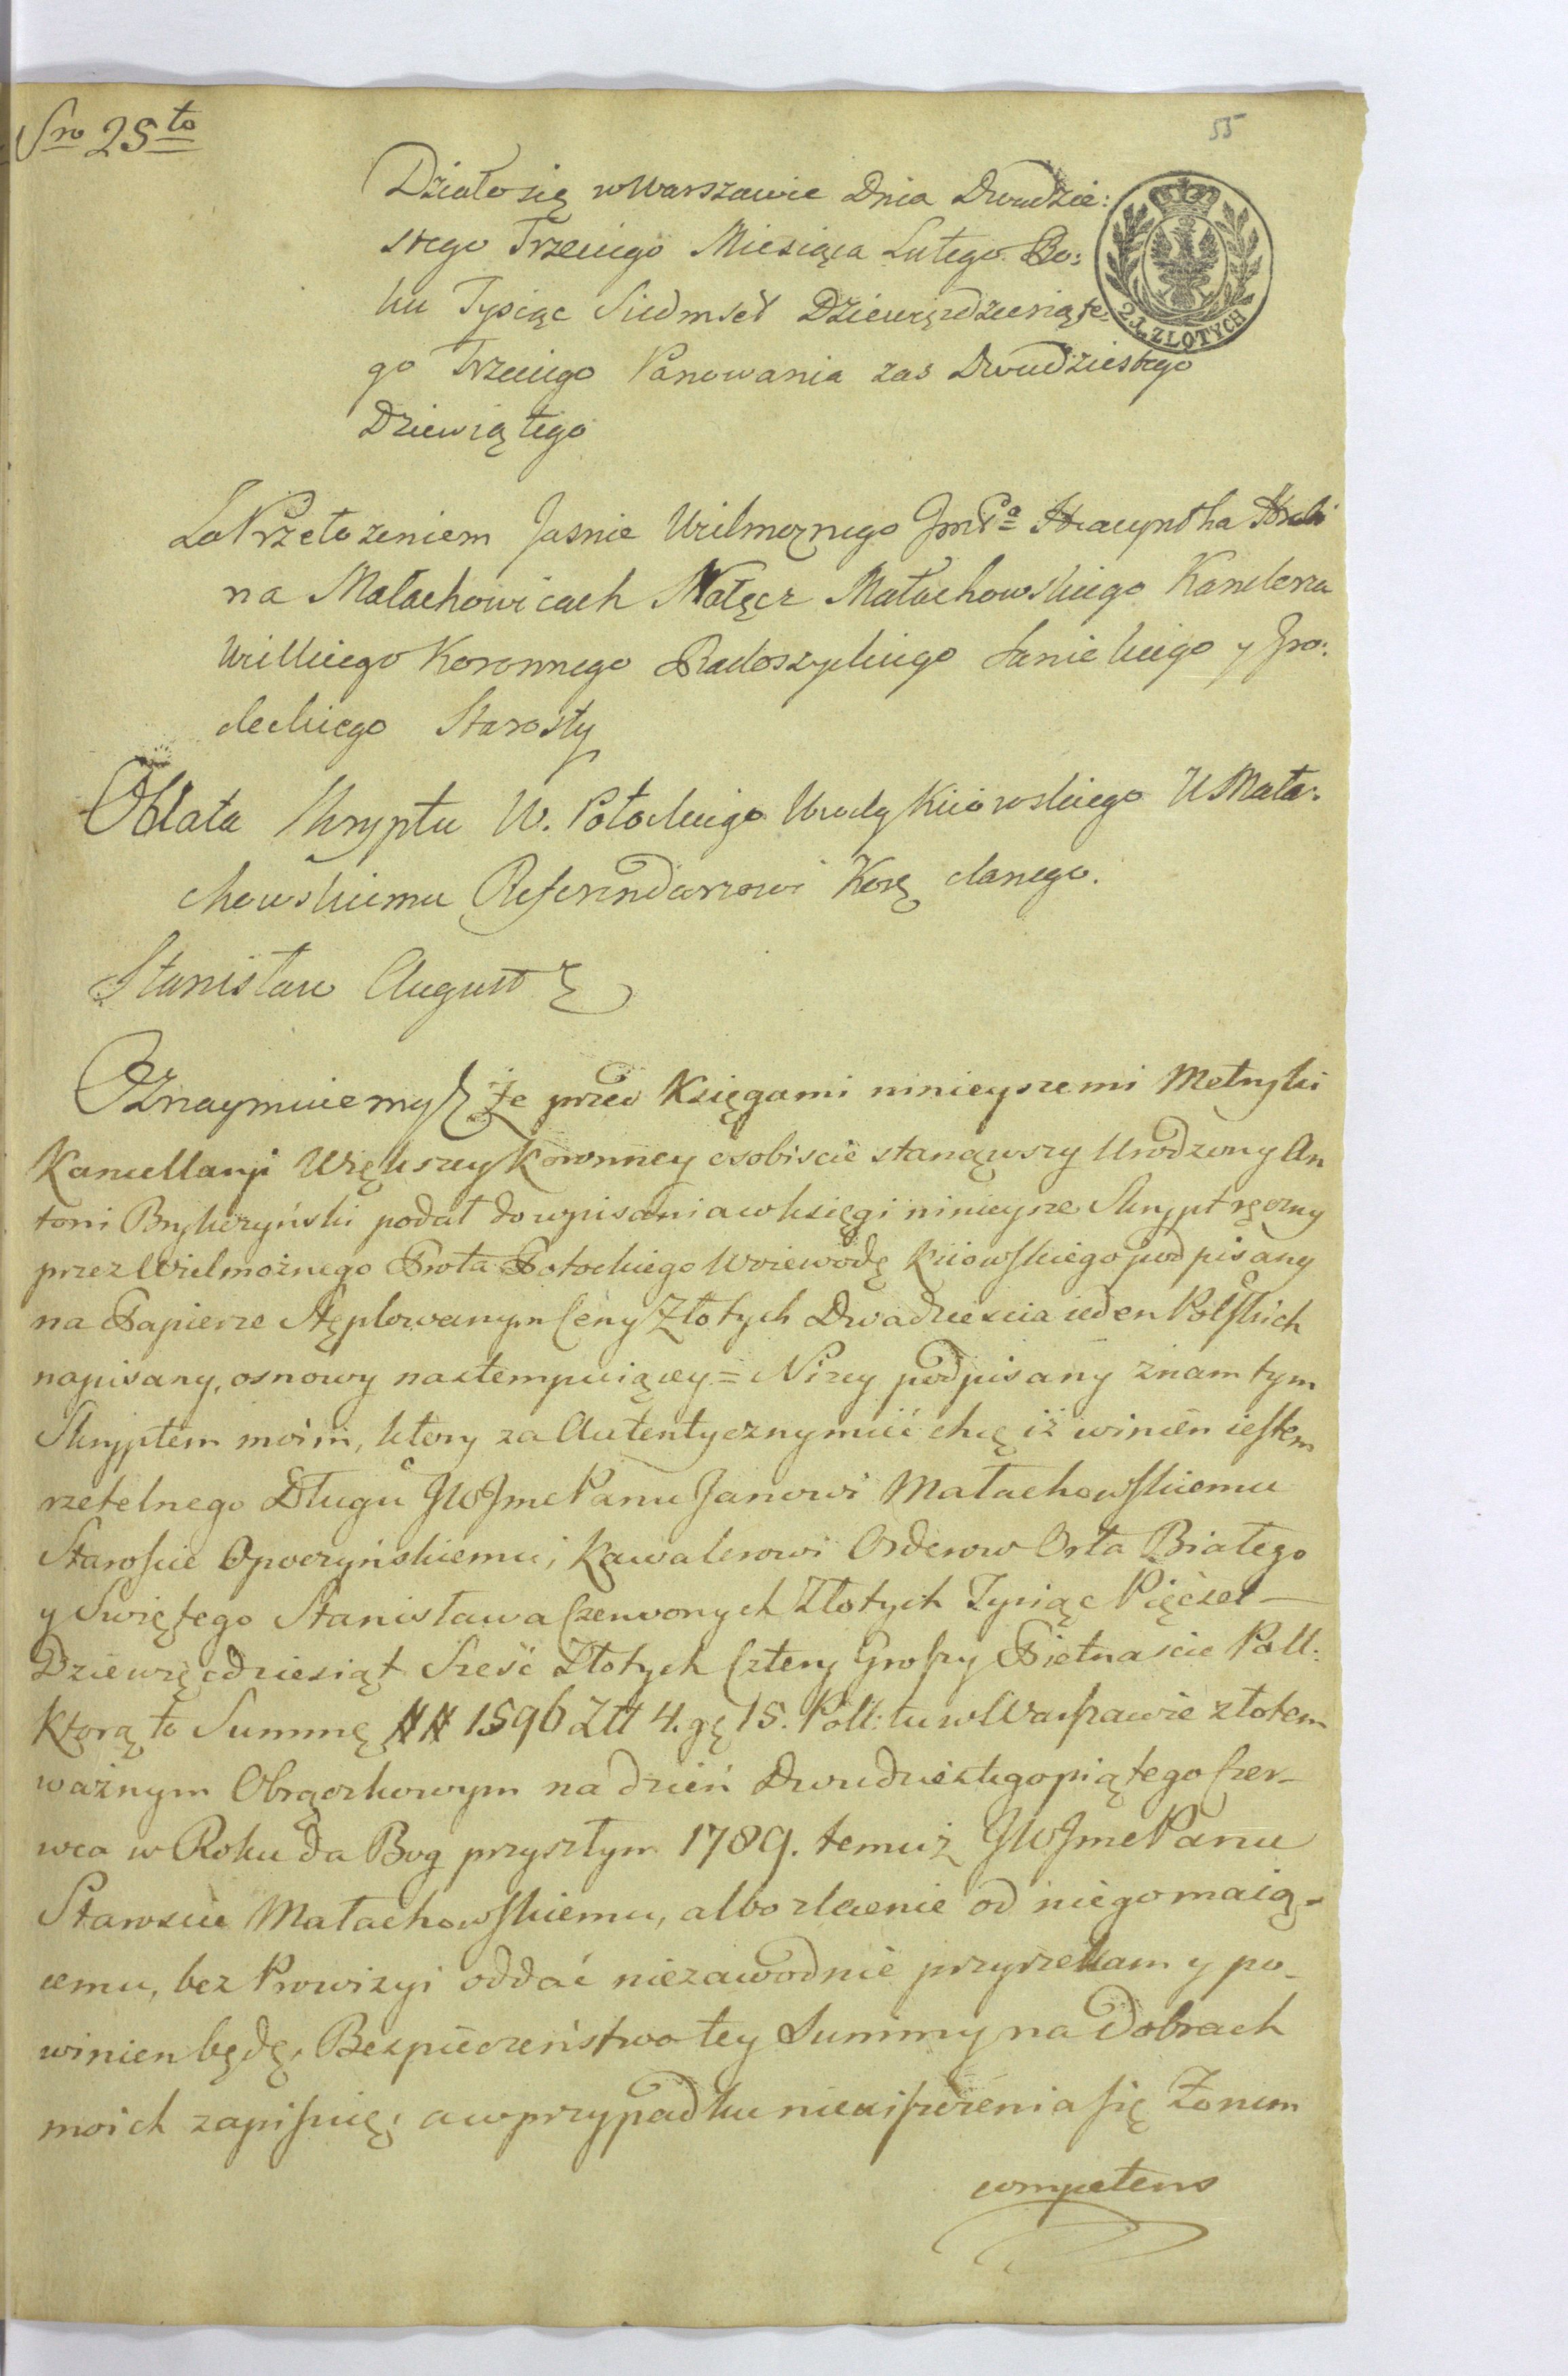 Sro 25to
55
Działo się w Warszawie Dnia Dwudzie:
stego Trzeciego Miesiąca Lutego Ro:
ku Tysiąc Siedmset Dziewiędziesiąte
go Trzeciego Panowania zas Dwudziestego
Dziewiątego
21. ZŁOTYCH
Za Przełozeniem Jasnie Wielmoznego JmPa Hiacyntha Hrabi
na Małachowicach Nałęcz Małachowskiego Kanclerza
Wielkiego Koronnego Radoszyckiego Sanickiego y Gro:
deckiego Starosty
Oblata Skryptu W. Potockiego Wwdy Kiiowskiego U Mała:
chowskiemu Referendarzowi Korę danego.
Stanisław August
Oznaymuiemy Że przed Księgami ninieyszemi Metryki
Kancellaryi Większey Koronney osobiscie stanąwszy Urodzony An
toni Brykczyński podał do wpisania w księgi ninieysze Skrypt ręczny
przez Wielmożnego Prota Potockiego Woiewodę Kiiowskiego podpisany
na Papierze Stęplowanym Ceny Złotych Dwadziescia ieden Polskich
napisany, osnowy nastempuiącey = Nizey podpisany znam tym
Skryptem moim, ktory za Autentyczny mieć chcę iż winien iestem
rzetelnego Długu JWJmcPanu Janowi Małachowskiemu
Staroscie Opoczyńskiemu, Kawalerowi Orderow Orła Białego
y Swiętego Stanisława Czerwonych Złotych Tysiąc Pięćset —
Dziewięcdziesiąt Sześć Złotych Cztery Groszy Pietnascie Poll:
Ktorą to Summę ## 1596 Złł 4. gę 15. Poll: tu w Warszawie złotem
ważnym Obrączkowym na dzień Dwudziestegopiątego Czer-
wca w Roku da Bog przyszłym 1789. temuż JWJmcPanu
Staroscie Małachowskiemu, albo zlecenie od niego maią-
cemu, bez Prowizyi oddać niezawodnie przyrzekam y po-
winien będę, Bezpieczeństwo tey Summy na Dobrach
moich zapisuię, a w przypadku nieuiszczenia się Zonem
competens